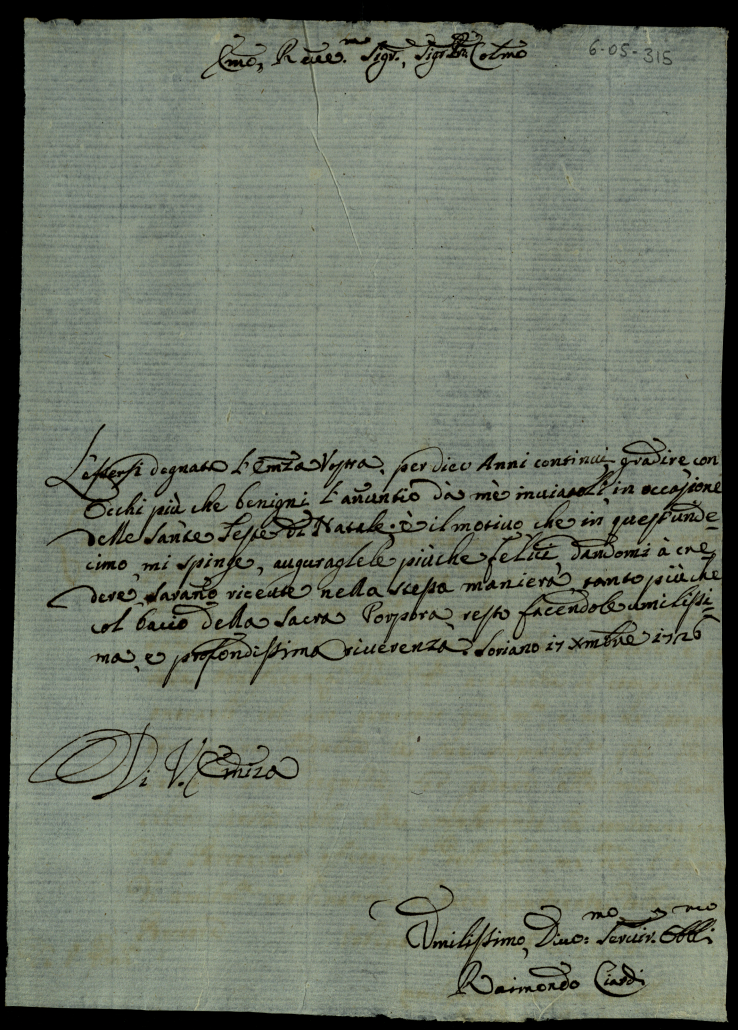 6-05-315
Emo, Reue.mo Sigr., Sigr Pn Colmo
L'essersi degnata L'Emza Vostra, per dieci Anni continui gradire con
Occhi più che benigni L'anuntio dà mè inuiatoli in occasione
delle Sante Feste di Natale, è il motiuo che in quest'unde=
cimo mi spinge, auguraglele più che felici dandomi à cre=
dere, saranno riceute nella stessa maniera, tanto più che
col bacio della Sacra Porpora resto facendole umilissi=
ma, e profondissima riuerenza. Soriano 17 Xmbre 1726
Di V. Emza
Umilissimo, Diuo:mo Seruir.e Obbli:mo
Raimondo Ciardi